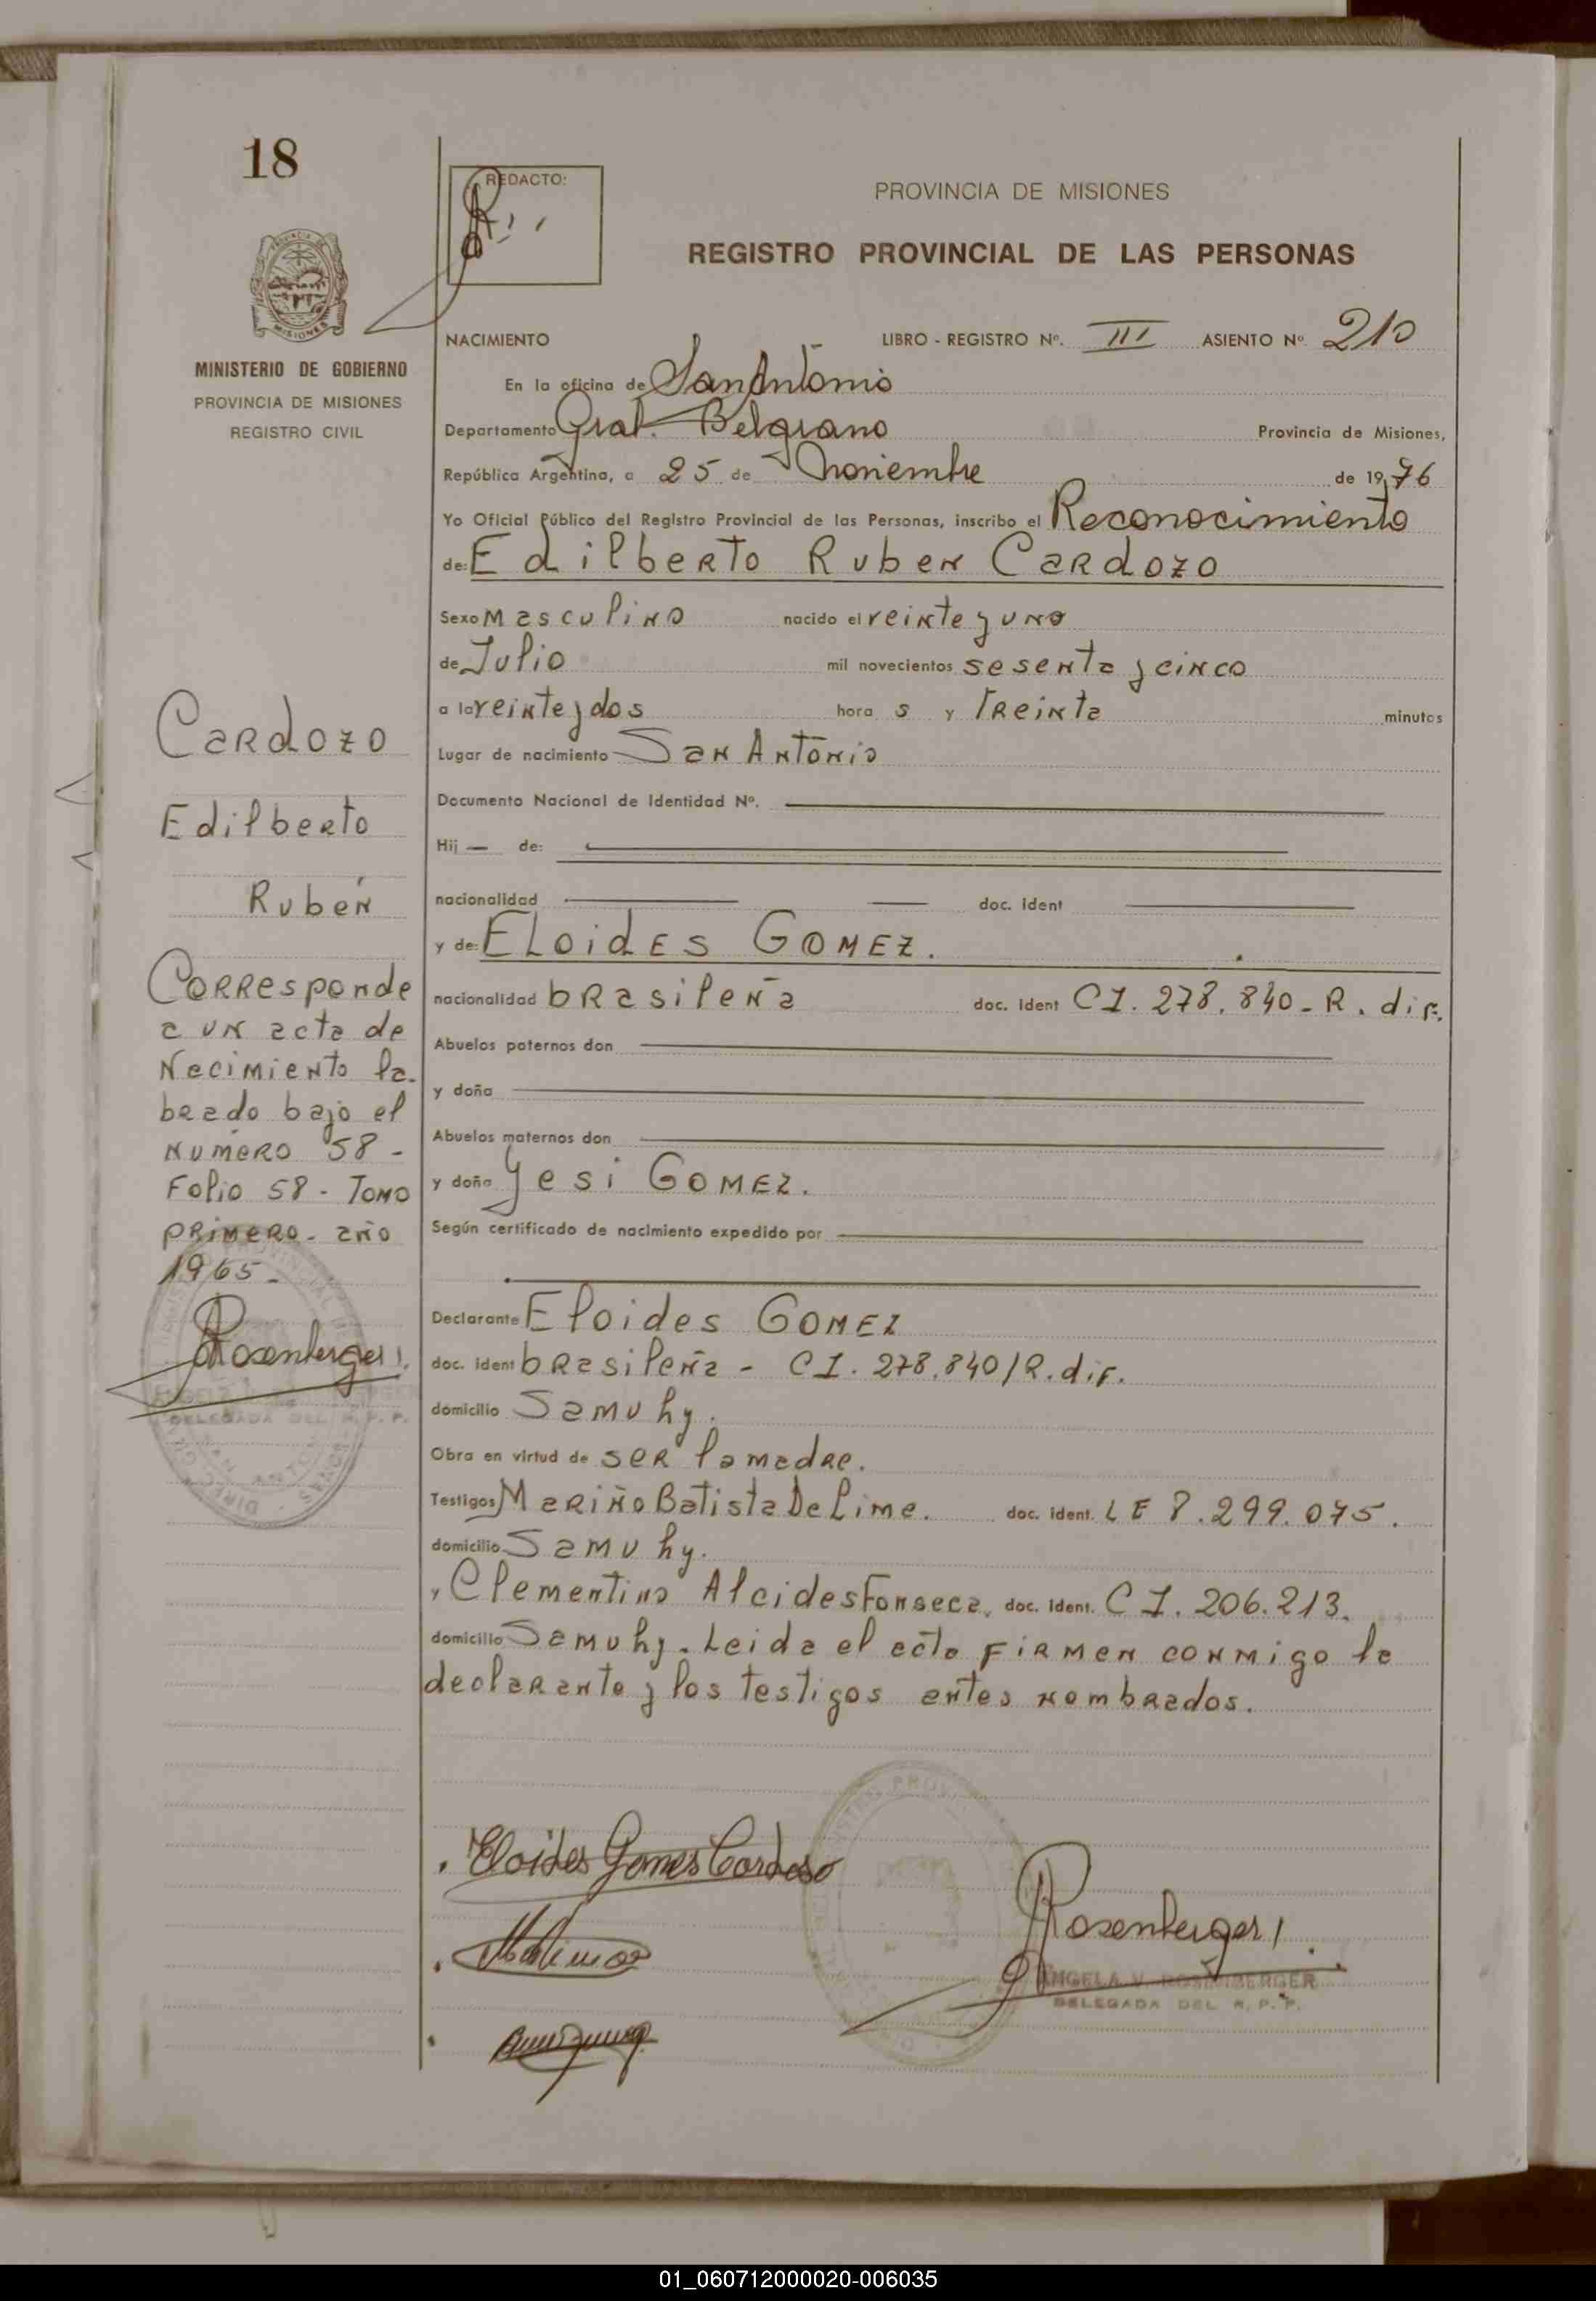 18
REDACTO:
PROVINCIA DE MISIONES
REGISTRO PROVINCIAL DE LAS PERSONAS
MISIONES
MINISTERIO DE GOBIERNO
PROVINCIA DE MISIONES
REGISTRO CIVIL
NACIMIENTO LIBRO - REGISTRO Nº. III ASIENTO Nº 210
En la oficina de San Antonio
Departamento Gral. Belgrano Provincia de Misiones,
República Argentina, a 25 de noviembre de 1976
Yo Oficial Público del Registro Provincial de las Personas, inscribo el Reconocimiento
de: Edilberto Ruben Cardozo
Sexo masculino nacido el veinte y uno
de Julio mil novecientos sesenta y cinco
a la veinte y dos hora s y Treinta minutos
Lugar de nacimiento San Antonio
Documento Nacional de Identidad Nº.
Hij — de:
nacionalidad doc. ident
y de: ELoides GOMEZ.
nacionalidad brasileña doc. ident CI. 278.840 - R. dif.
Abuelos paternos don
y doña
Abuelos maternos don
y doña Yesi GOMEZ.
Según certificado de nacimiento expedido por
Declarante Eloides GOMEZ
doc. ident brasileña - CI. 278.840/R. dif.
domicilio Samuhy.
Obra en virtud de ser la madre.
Testigos Mariño Batista De Lima. doc. ident. LE 8.299.075.
domicilio Samuhy.
y Clementino Alcides Fonseca. doc. ident. CI. 206.213.
domicilio Samuhy. Leida el acta firman conmigo la
declarante y los testigos antes nombrados.
Cardozo
Edilberto
Rubén
Corresponde
a un acta de
Nacimiento la-
brado bajo el
numero 58 -
Folio 58 - Tomo
primero - año
1965 -
Rosenberger
DELEGADA DEL R. P. P.
Eloides Gomes Cardoso
Rosenberger
ANGELA V. ROSENBERGER
DELEGADA DEL R. P. P.
01_060712000020-006035